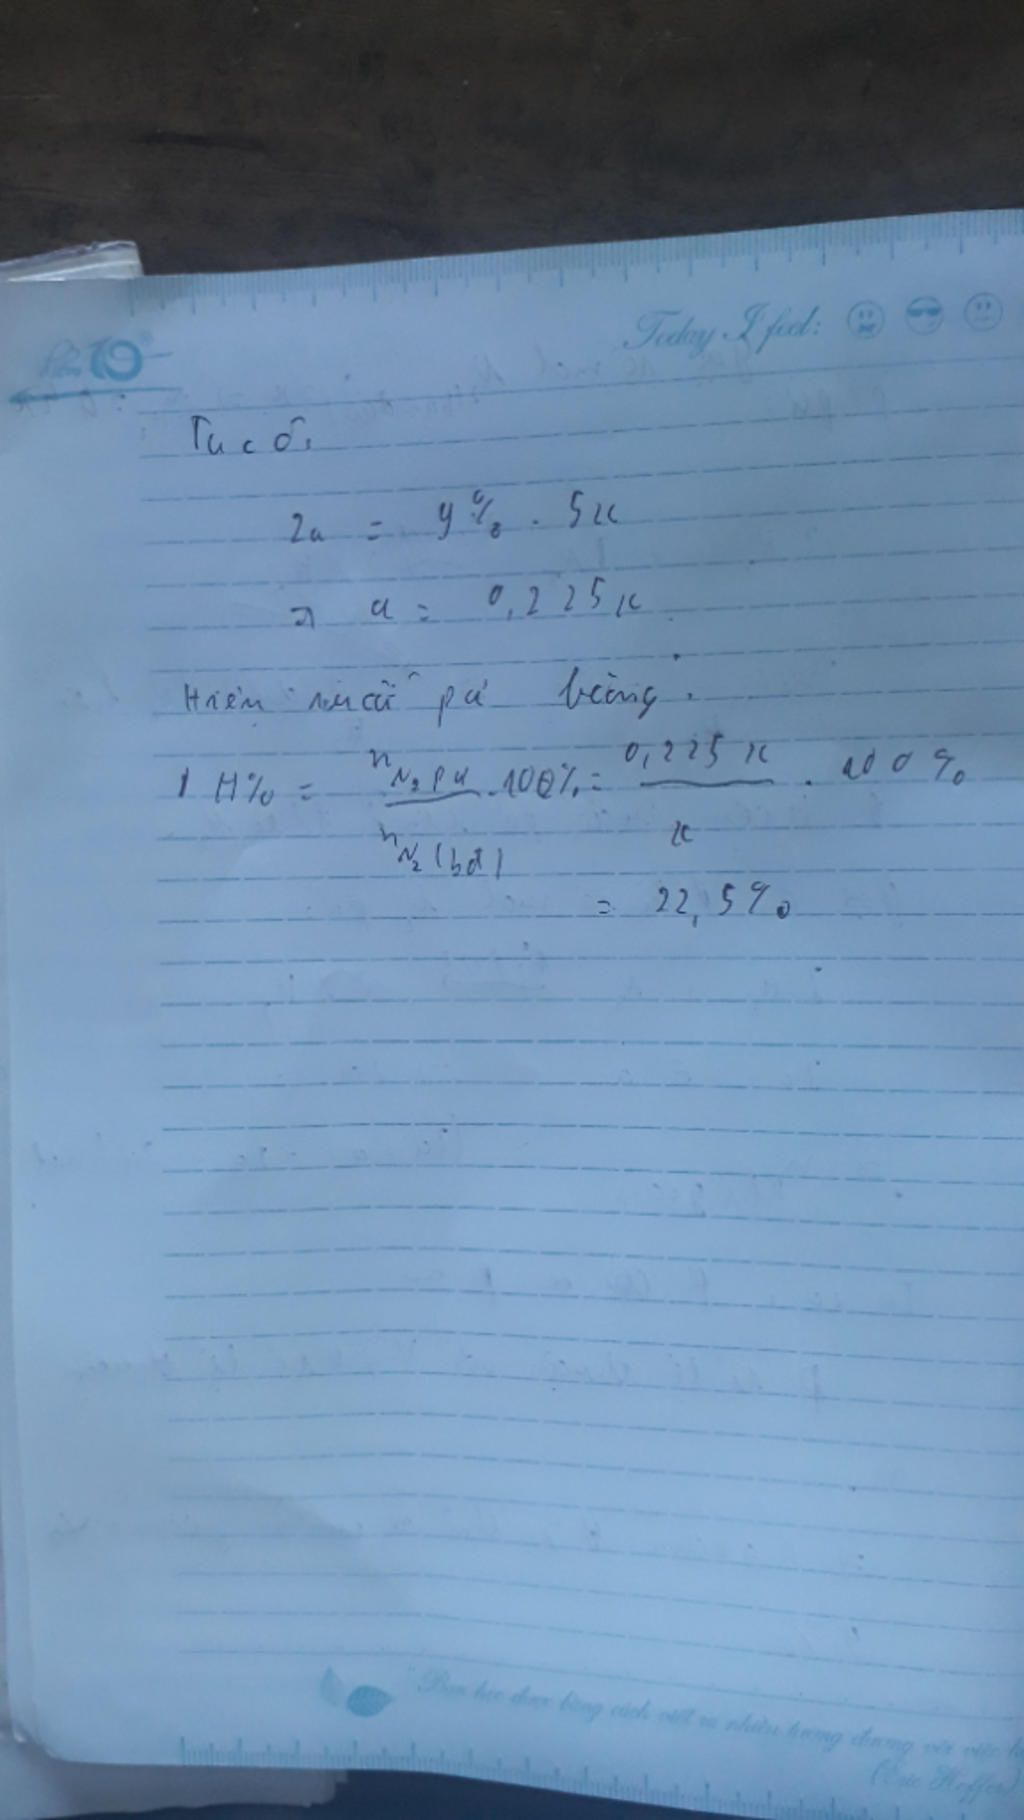 Today I feel:
Ta có:
2a = 9% . 5x
=> a = 0,225x
Hiệu suất pứ bằng.
H% = nN₂ pứ / nN₂ (bđ) . 100% = 0,225x / x . 100%
= 22,5%
Bạn học được bằng cách viết ra nhiều tương đương với việc
(Eric Hoffer)